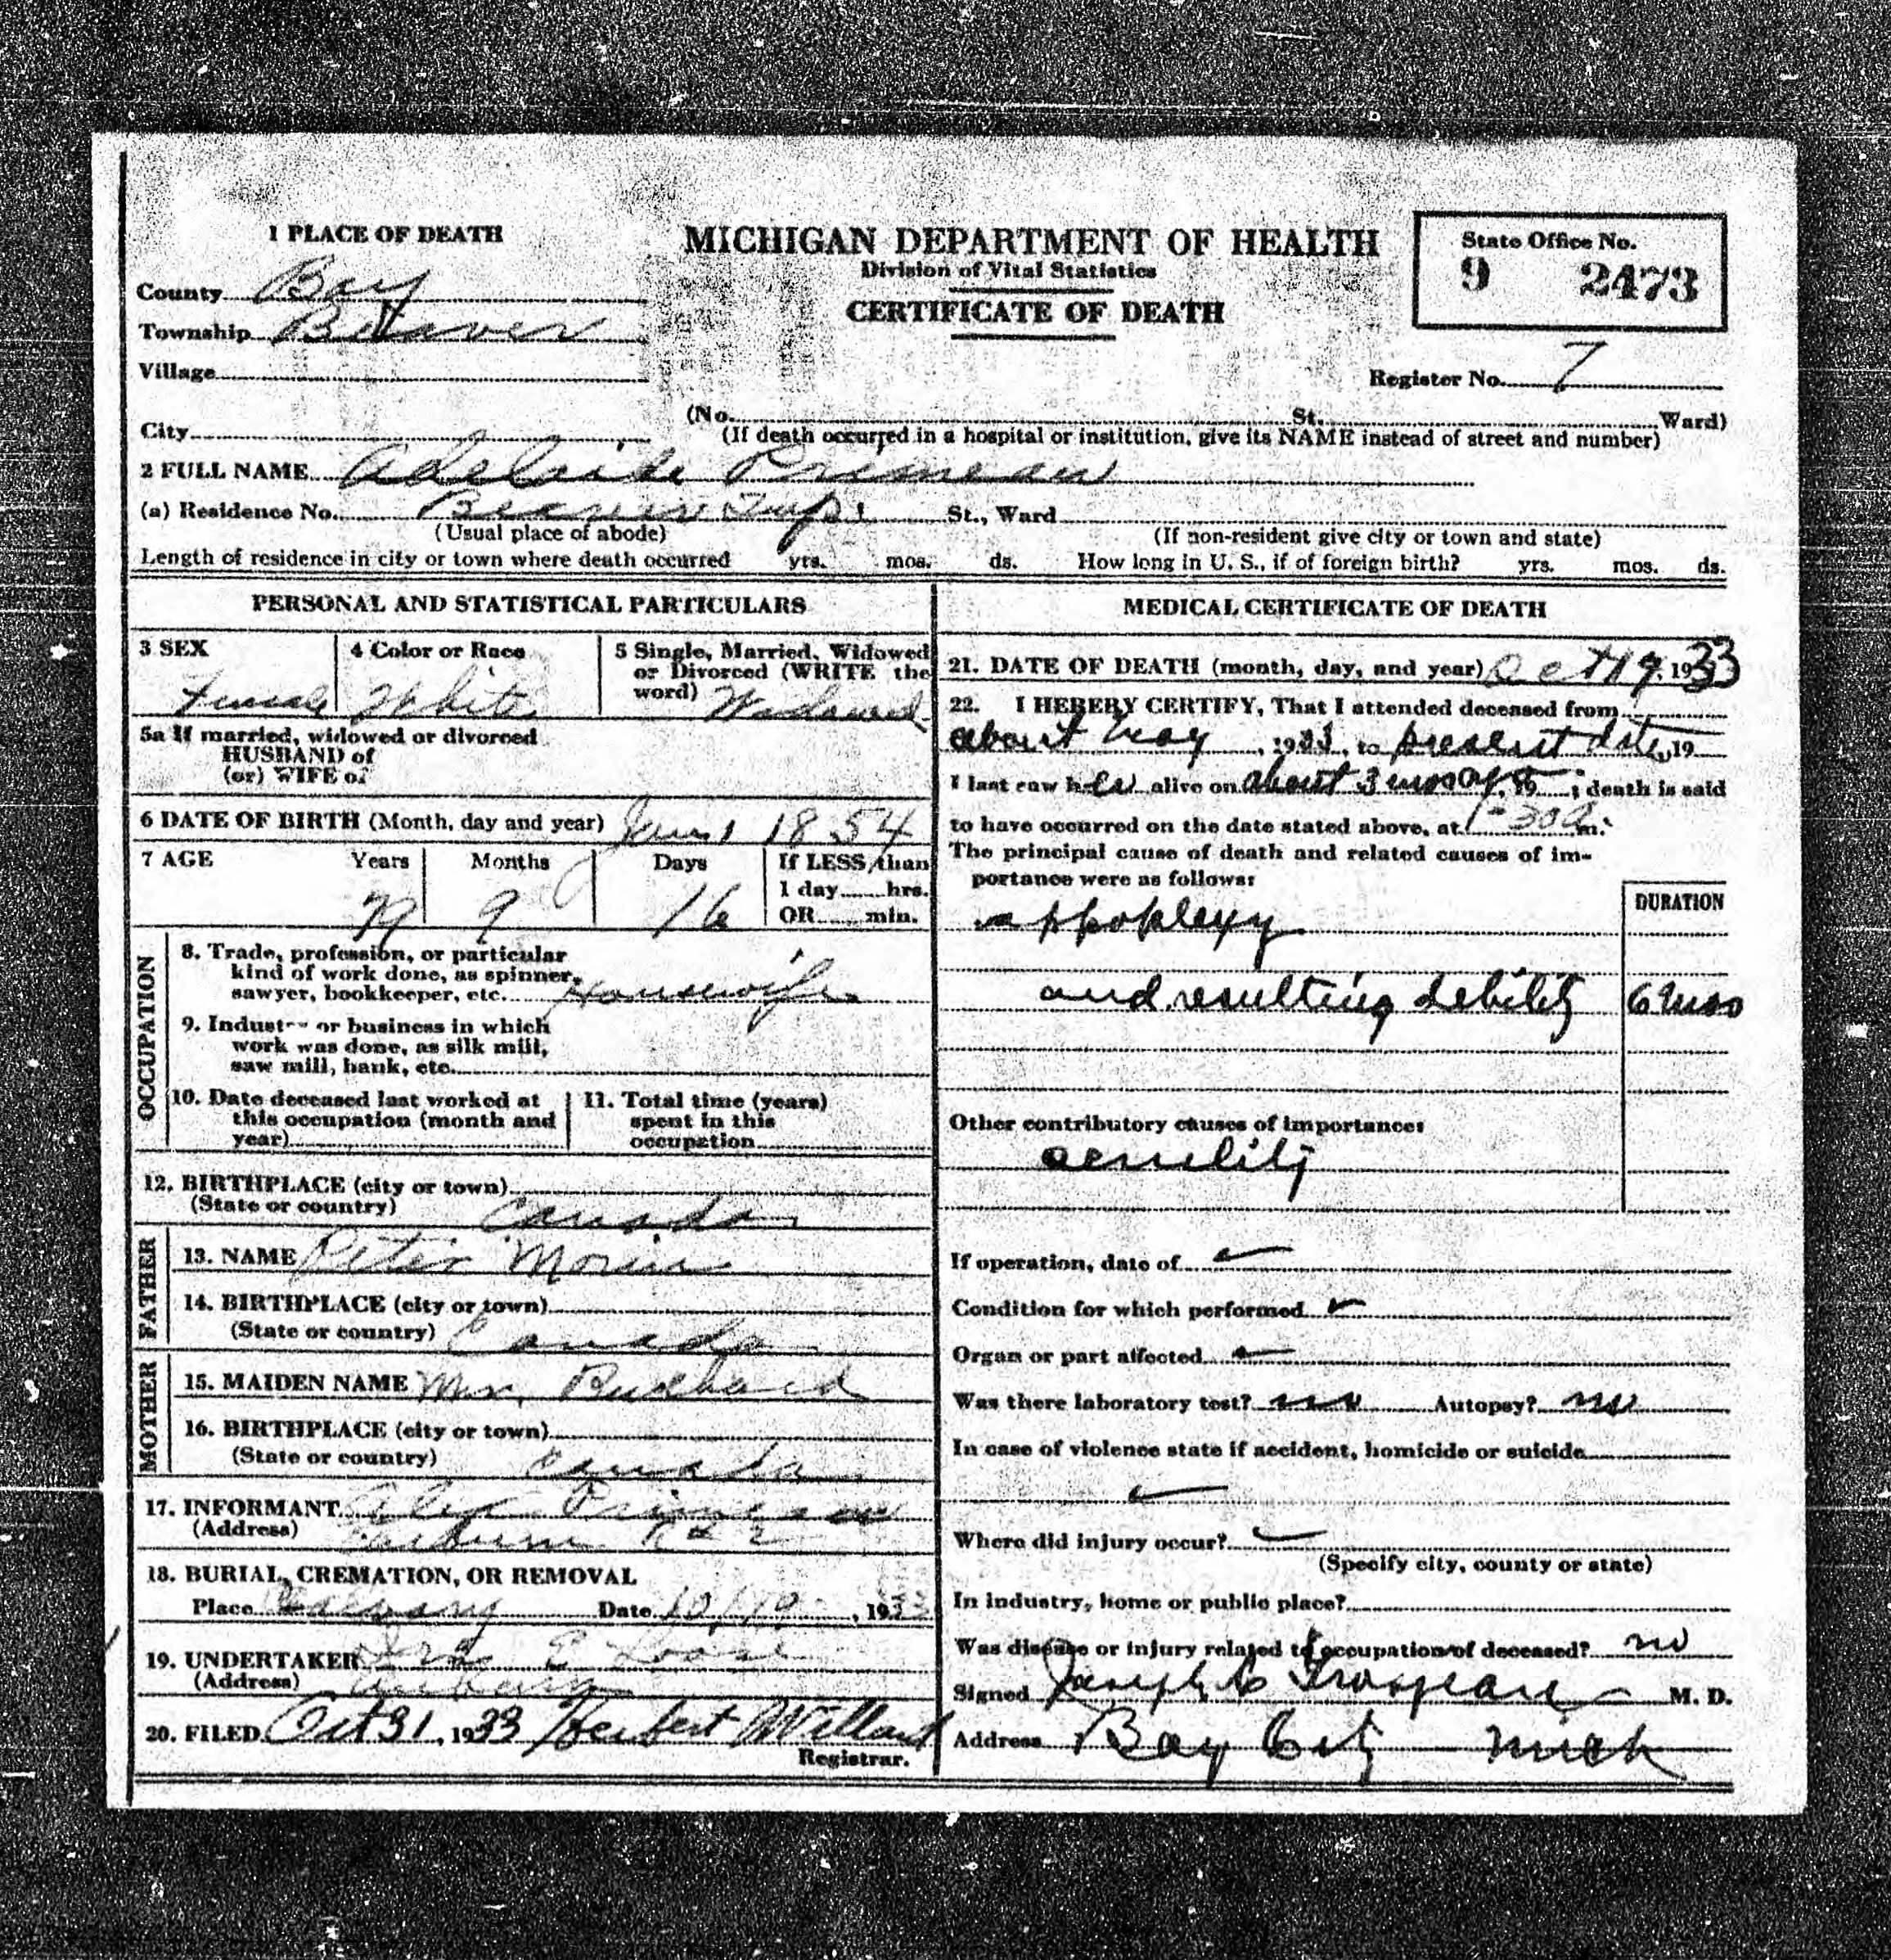 1 PLACE OF DEATH
MICHIGAN DEPARTMENT OF HEALTH
Division of Vital Statistics
CERTIFICATE OF DEATH
State Office No.
9 2473
County Bay
Township Beaver
Village
Register No. 7
(No. St. Ward)
City
(If death occurred in a hospital or institution, give its NAME instead of street and number)
2 FULL NAME Adelaide Primeau
(a) Residence No. Beaver Twp. St., Ward
(Usual place of abode) (If non-resident give city or town and state)
Length of residence in city or town where death occurred yrs. mos. ds. How long in U. S., if of foreign birth? yrs. mos. ds.
PERSONAL AND STATISTICAL PARTICULARS
3 SEX
Female
4 Color or Race
White
5 Single, Married, Widowed
or Divorced (WRITE the
word) Widowed
5a If married, widowed or divorced
HUSBAND of
(or) WIFE of
6 DATE OF BIRTH (Month, day and year) Jan 1 1854
7 AGE Years Months Days If LESS than
1 day hrs.
79 9 16 OR min.
OCCUPATION
8. Trade, profession, or particular
kind of work done, as spinner,
sawyer, bookkeeper, etc. Housewife
9. Industry or business in which
work was done, as silk mill,
saw mill, bank, etc.
10. Date deceased last worked at
this occupation (month and
year)
11. Total time (years)
spent in this
occupation
12. BIRTHPLACE (city or town)
(State or country) Canada
FATHER
13. NAME Peter Morin
14. BIRTHPLACE (city or town)
(State or country) Canada
MOTHER
15. MAIDEN NAME Mrs.
16. BIRTHPLACE (city or town)
(State or country) Canada
17. INFORMANT Alex Primeau
(Address) Auburn R # 2
18. BURIAL, CREMATION, OR REMOVAL
Place Calvary Date 10/19, 1933
19. UNDERTAKER Ira E Loose
(Address) Auburn
20. FILED Oct 31, 1933 Herbert Willard
Registrar.
MEDICAL CERTIFICATE OF DEATH
21. DATE OF DEATH (month, day, and year) Oct 17, 1933
22. I HEREBY CERTIFY, That I attended deceased from
about May, 1933, to present date, 19
I last saw her alive on about 3 mos ago, 19 ; death is said
to have occurred on the date stated above, at 1-30 a m.
The principal cause of death and related causes of im-
portance were as follows:
DURATION
appoplexy
and resulting debility 6 mos
Other contributory causes of importance:
senility
If operation, date of ✓
Condition for which performed ✓
Organ or part affected ✓
Was there laboratory test? no Autopsy? no
In case of violence state if accident, homicide or suicide
✓
Where did injury occur? ✓
(Specify city, county or state)
In industry, home or public place?
Was disease or injury related to occupation of deceased? no
Signed Joseph M. D.
Address Bay City Mich